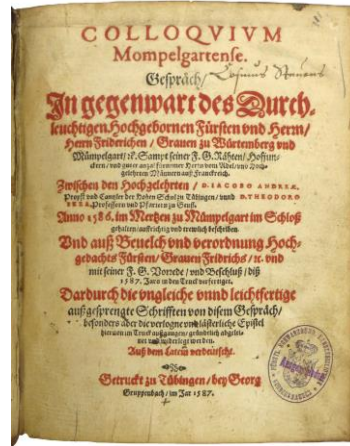 COLLOQVIVM
Mompelgartense.
Gespräch/
In gegenwart des Durch-
leuchtigen Hochgebornen Fürsten vnd Herrn/
Herrn Friderichen / Grauen zu Würtemberg vnd
Mümpelgart / ꝛc. Sampt seiner F. G. Rähten / Hofjun-
ckern / vnd guter anzal fürnemer Herrn vom Adel / vnd Hoch-
gelehrten Männern auß Franckreich.
Zwischen den Hochgelehrten / D. IACOBO ANDREÆ,
Propst vnd Cantzler der Hohen Schul zu Tübingen / vnnd D. THEODORO
BEZA, Professorn vnd Pfarrern zu Genff.
Anno 1586. im Mertzen zu Mümpelgart im Schloß
gehalten / auffrichtig vnd trewlich beschriben.
Vnd auß Beuelch vnd verordnung Hoch-
gedachts Fürsten / Grauen Fridrichs / ꝛc. vnd
mit seiner F. G. Vorrede / vnd Beschluß / diß
1587. Jars in den Truck verfertiget.
Dardurch die vngleiche vnnd leichtfertige
außgesprengte Schrifften von disem Gespräch /
besonders aber die verlogne vnd lästerliche Epistel
hieruon im Truck außgangen / gründtlich abgelei-
net vnd widerlegt werden.
Auß dem Latein verdeutscht.
Getruckt zu Tübingen / bey Georg
Gruppenbach / im Jar 1587.